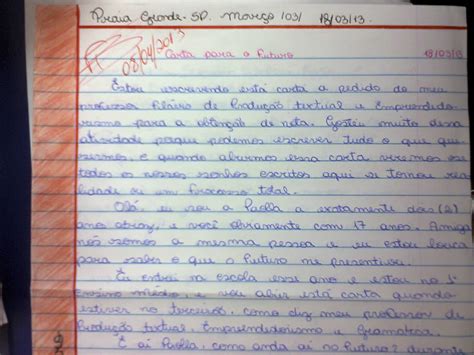 Praia Grande - SP. Março /03/ 18/03/13.
08/04/2013
Carta para o futuro 18/03/13
Estou escrevendo está carta a pedido do meu
professor de Produção textual e Empreendedo-
rismo para a obtenção de nota. Gostei muito dessa
atividade porque podemos escrever tudo o que qui-
sermos, e quando abrirmos essa carta veremos se
todos os nossos sonhos escritos aqui se tornou rea-
lidade ou um fracasso total.
Olá eu sou a Paolla a exatamente dois (2)
anos atrás, e você obviamente com 17 anos. Amiga
nós somos a mesma pessoa e eu estou louca
para saber o que o futuro me presenteou.
Eu entrei na escola esse ano e estou no 1º
Ensino médio, e vou abrir está carta quando
estiver no terceirão, como diz meu professor de
Produção textual, Empreendedorismo e Gramática.
E aí Paolla, como anda aí no futuro? durante